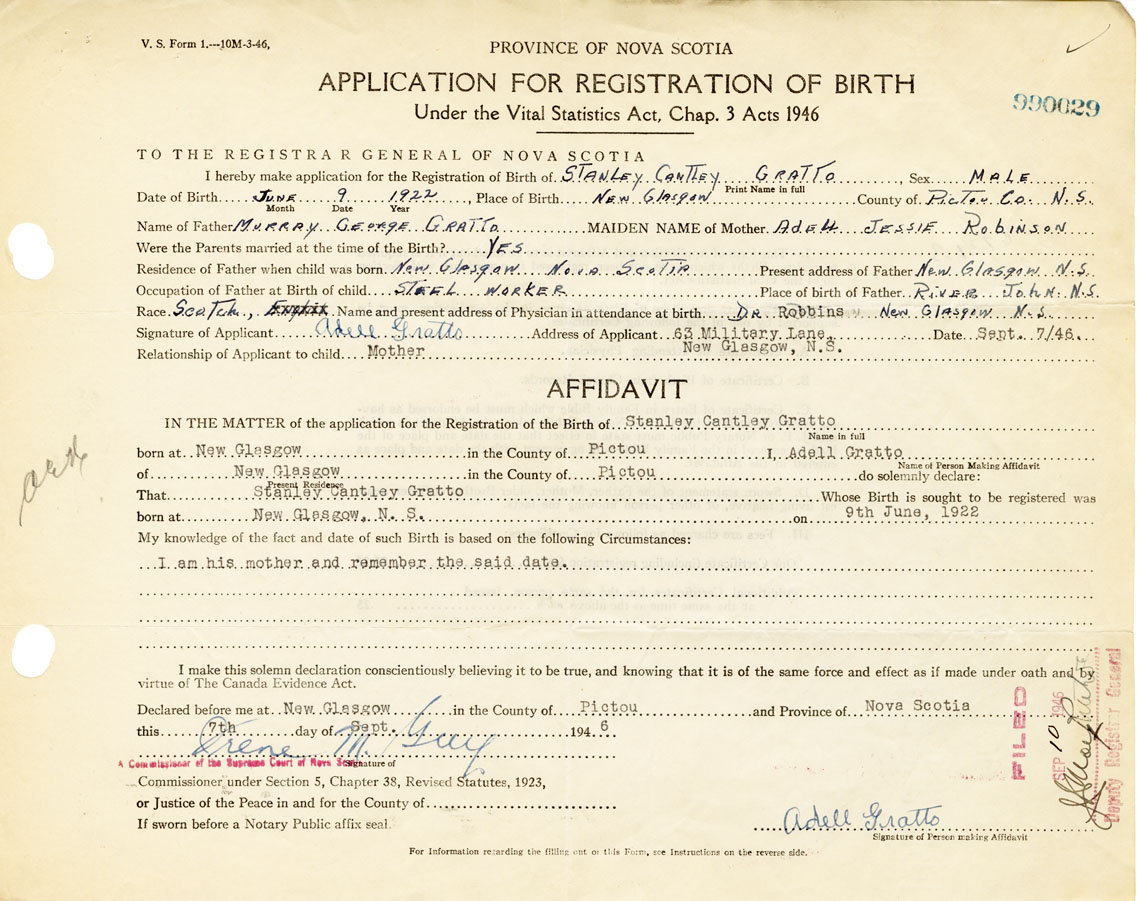 V. S. Form 1.---10M-3-46,
PROVINCE OF NOVA SCOTIA
APPLICATION FOR REGISTRATION OF BIRTH
990029
Under the Vital Statistics Act, Chap. 3 Acts 1946
TO THE REGISTRAR GENERAL OF NOVA SCOTIA
I hereby make application for the Registration of Birth of. STANLEY CANTLEY GRATTO, Sex MALE
Print Name in full
Date of Birth JUNE 9 1922, Place of Birth NEW GLASGOW County of PICTOU CO. N.S.
Month Date Year
Name of Father MURRAY GEORGE GRATTO MAIDEN NAME of Mother ADELL JESSIE ROBINSON
Were the Parents married at the time of the Birth? YES
Residence of Father when child was born. NEW GLASGOW NOVA SCOTIA Present address of Father NEW GLASGOW N.S.
Occupation of Father at Birth of child STEEL WORKER Place of birth of Father RIVER JOHN N.S.
Race SCOTCH, Name and present address of Physician in attendance at birth DR Robbins NEW GLASGOW N.S.
Signature of Applicant Adell Gratto Address of Applicant 63 Military Lane, Date Sept. 7/46.
Relationship of Applicant to child. Mother New Glasgow, N.S.
AFFIDAVIT
IN THE MATTER of the application for the Registration of the Birth of Stanley Cantley Gratto
Name in full
born at New Glasgow in the County of Pictou I, Adell Gratto
Name of Person Making Affidavit
of New Glasgow in the County of Pictou do solemnly declare:
Present Residence
That Stanley Cantley Gratto Whose Birth is sought to be registered was
born at New Glasgow, N. S. on 9th June, 1922
My knowledge of the fact and date of such Birth is based on the following Circumstances:
I am his mother and remember the said date.
I make this solemn declaration conscientiously believing it to be true, and knowing that it is of the same force and effect as if made under oath and by
virtue of The Canada Evidence Act.
Declared before me at New Glasgow in the County of Pictou and Province of Nova Scotia
this 7th day of Sept. 194 6
Irene M. Guy
A Commissioner of the Supreme Court of Nova Scotia
Signature of
Commissioner under Section 5, Chapter 38, Revised Statutes, 1923,
or Justice of the Peace in and for the County of
If sworn before a Notary Public affix seal.
Adell Gratto
Signature of Person making Affidavit
For Information regarding the filling out of this Form, see Instructions on the reverse side.
FILED
SEP 10 1946
Deputy Registrar General